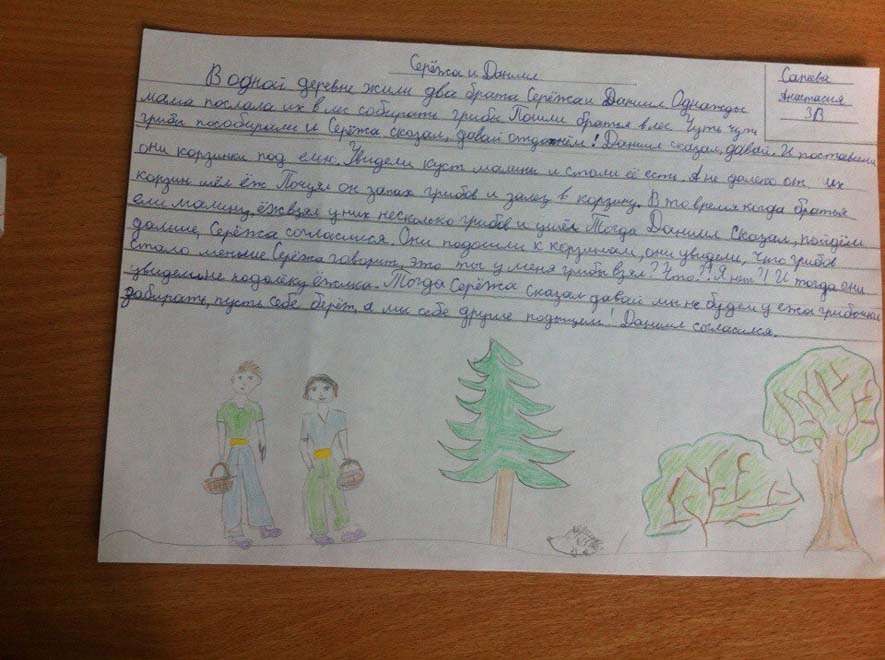 Серёжа и Даниил
Сапеева
Анастасия
3В
В одной деревне жили два брата Серёжа и Даниил Однажды
мама послала их в лес собирать грибы Пошли братья в лес. Чуть чуть
грибы пособирали и Серёжа сказал, давай отдохнём! Даниил сказал, давай. И поставили
они корзинки под ёлку. Увидели куст малины и стали её есть. А не далеко от их
корзин шёл ёж Почуял он запах грибов и залез в корзину. В то время когда братья
ели малину, ёж взял у них несколько грибов и ушёл. Тогда Даниил сказал, пойдём
дальше, Серёжа согласился. Они подошли к корзинам, они увидели, что грибов
стало меньше Серёжа говорит, это ты у меня грибы взял? Что?! Я нет"! И тогда они
увидели не подолёку ёжика. Тогда Серёжа сказал давай мы не будем у ежа грибочки
забирать, пусть себе берёт, а мы себе другие подыщем! Даниил согласился.